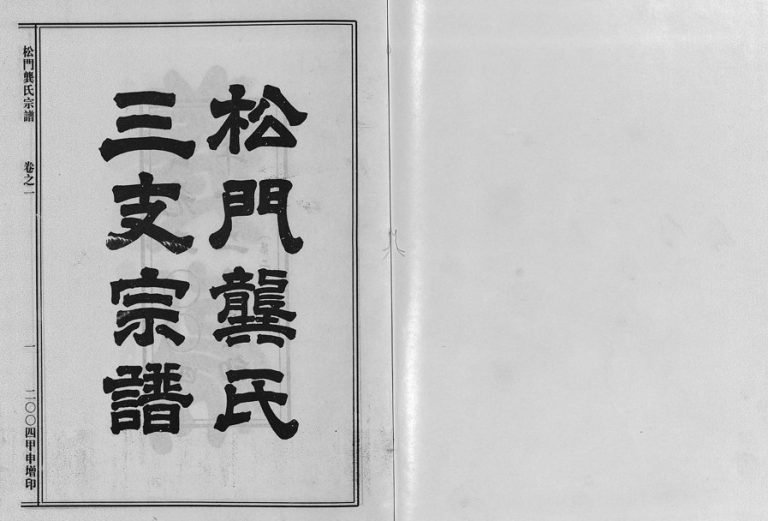 松門龔氏
三支宗譜
松門龔氏宗譜
卷之一
一
二〇〇四甲申增印